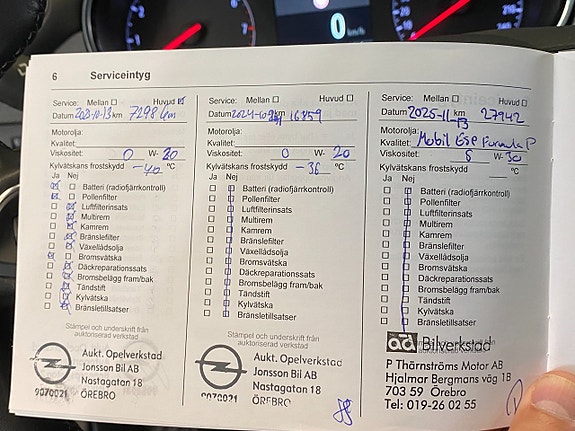 6 Serviceintyg
Service: Mellan ☐ Huvud ☒
Datum km 7298 km
Motorolja:
Kvalitet:
Viskositet: 0 W- 20
Kylvätskans frostskydd -40 °C
Ja Nej
Batteri (radiofjärrkontroll)
Pollenfilter
Luftfilterinsats
Multirem
Kamrem
Bränslefilter
Växellådsolja
Bromsvätska
Däckreparationssats
Bromsbelägg fram/bak
Tändstift
Kylvätska
Bränsletillsatser
Stämpel och underskrift från
auktoriserad verkstad
Aukt. Opelverkstad
Jonsson Bil AB
Nastagatan 18
9070021 ÖREBRO
Service: Mellan ☐ Huvud ☐
Datum km 16859
Motorolja:
Kvalitet:
Viskositet: 0 W- 20
Kylvätskans frostskydd -36 °C
Ja Nej
Batteri (radiofjärrkontroll)
Pollenfilter
Luftfilterinsats
Multirem
Kamrem
Bränslefilter
Växellådsolja
Bromsvätska
Däckreparationssats
Bromsbelägg fram/bak
Tändstift
Kylvätska
Bränsletillsatser
Stämpel och underskrift från
auktoriserad verkstad
Aukt. Opelverkstad
Jonsson Bil AB
Nastagatan 18
9070021 ÖREBRO
Service: Mellan ☐ Huvud ☐
Datum 2025-11-13 km 27942
Motorolja:
Kvalitet: Mobil ESP Formula P
Viskositet: 5 W- 30
Kylvätskans frostskydd °C
Ja Nej
Batteri (radiofjärrkontroll)
Pollenfilter
Luftfilterinsats
Multirem
Kamrem
Bränslefilter
Växellådsolja
Bromsvätska
Däckreparationssats
Bromsbelägg fram/bak
Tändstift
Kylvätska
Bränsletillsatser
ad Bilverkstad
P Thärnströms Motor AB
Hjalmar Bergmans väg 1B
703 59 Örebro
Tel: 019-26 02 55
0